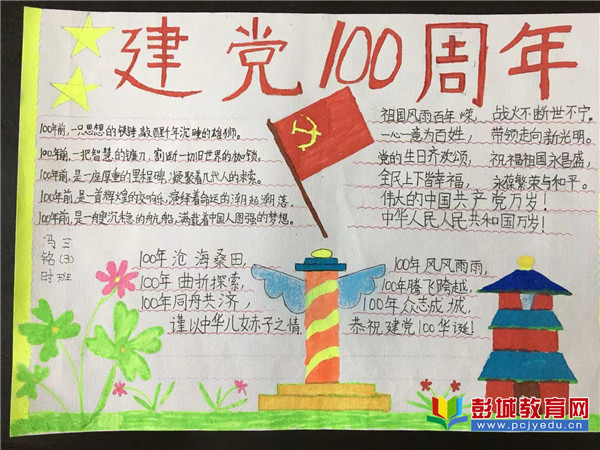 建党100周年
100年前,一只思想的铁锤敲醒千年沉睡的雄狮。
100年前,一把智慧的镰刀,割断一切旧世界的枷锁。
100年前,是一座厚重的里程碑,凝聚着几代人的求索。
100年前,是一首辉煌的交响乐,演绎着命运的潮起潮落。
100年前,是一艘沉稳的航船,满载着中国人图强的梦想。
祖国风雨百年嵘,战火不断世不宁。
一心一意为百姓,带领走向新光明。
党的生日齐欢颂,祝福祖国永昌盛,
全民上下皆幸福,永葆繁荣与和平。
伟大的中国共产党万岁!
中华人民人民共和国万岁!
冯铭时
三(3)班
100年沧海桑田,
100年曲折探索,
100年同舟共济,
谨以中华儿女赤子之情
100年风风雨雨,
100年腾飞跨越,
100年众志成城,
恭祝建党100华诞!
彭城教育网
www.pcjyedu.cn